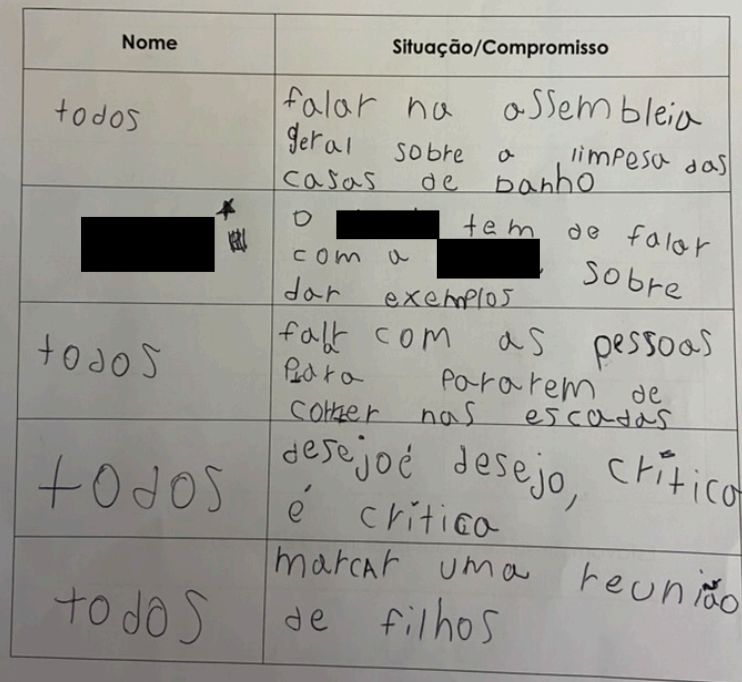 Nome Situação/Compromisso
todos
falar na assembleia
geral sobre a limpesa das
casas de banho
O tem de falar
com a sobre
dar exemplos
todos
falar com as pessoas
para pararem de
correr nas escadas
todos
desejo é desejo, crítica
é crítica
todos
marcar uma reunião
de filhos